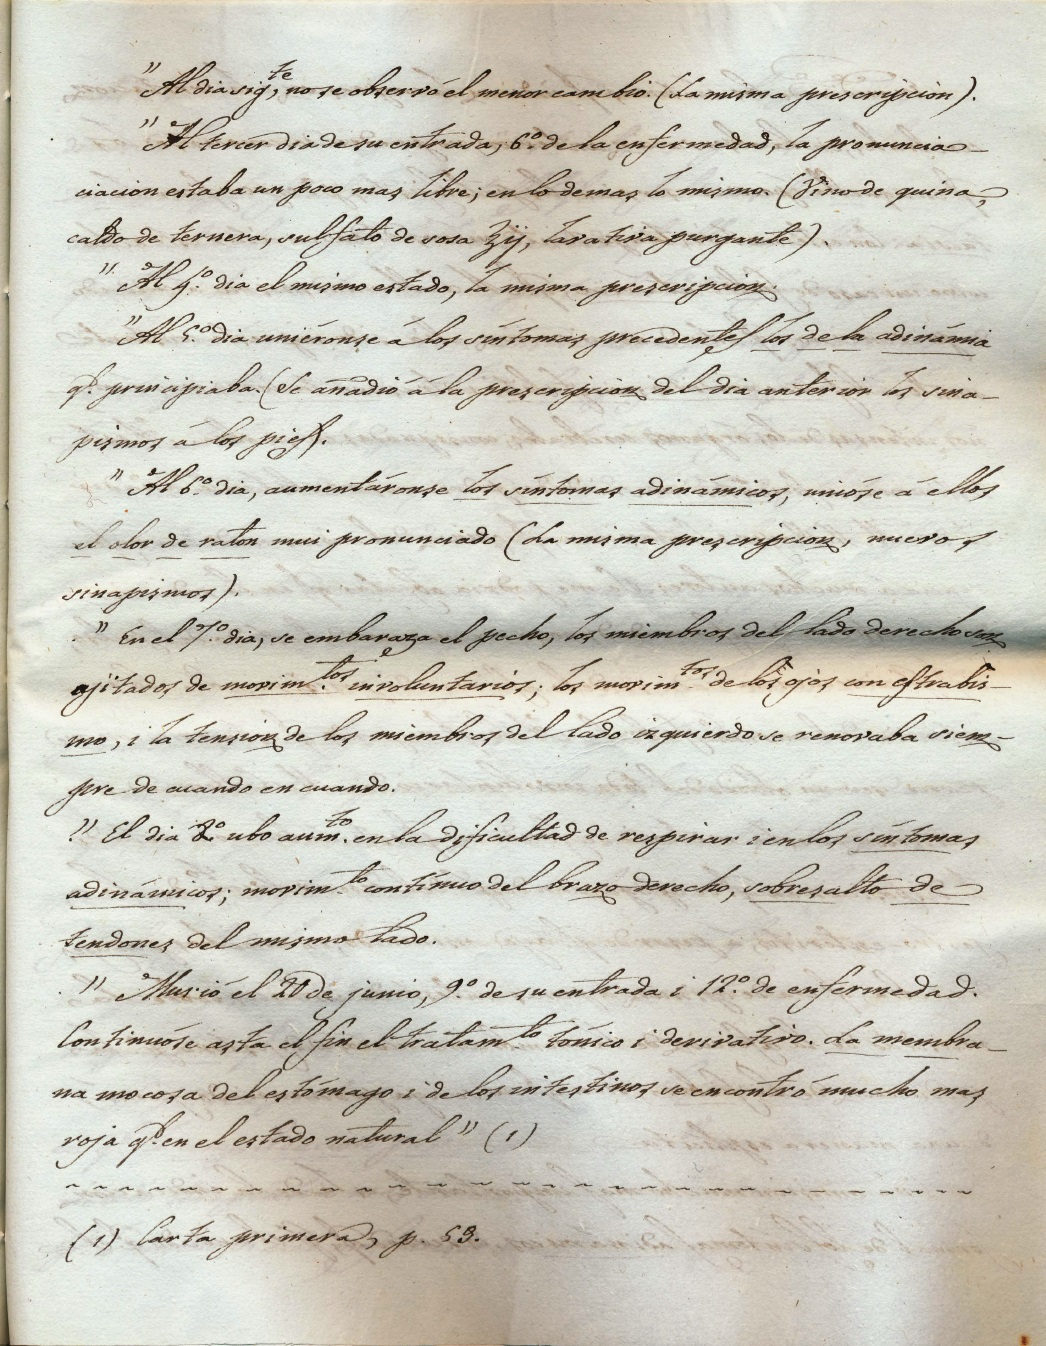 "Al dia sig.te, no se observó el menor cambio. (La misma prescripcion).
"Al tercer dia de su entrada, 6.º de la enfermedad, la pronuncia-
ciacion estaba un poco mas libre; en lo demas lo mismo. (Vino de quina,
caldo de ternera, sulfato de sosa ʒij, lavativa purgante).
"Al 4.º dia el mismo estado, la misma prescripcion.
"Al 5.º dia uniéronse á los síntomas precedentes los de la adinámia
q.e principiaba. (Se añadió á la prescripcion del dia anterior los sina-
pismos á los pies).
"Al 6.º dia, aumentáronse los síntomas adinámicos, unióse á ellos
el olor de raton mui pronunciado (La misma prescripcion, nuevos
sinapismos).
"En el 7.º dia, se embaraza el pecho, los miembros del lado derecho son
ajitados de movim.tos involuntarios; los movim.tos de los ojos con estrabis-
mo, i la tension de los miembros del lado izquierdo se renovaba siem-
pre de cuando en cuando.
"El dia 8º ubo aum.to en la dificultad de respirar i en los síntomas
adinámicos; movim.to contínuo del brazo derecho, sobresalto de
tendones del mismo lado.
"Murió el 20 de junio, 9.º de su entrada i 12.º de enfermedad.
Continuóse asta el fin el tratam.to tónico i derivativo. La membra-
na mocosa del estómago i de los intestinos se encontró mucho mas
roja q.e en el estado natural" (1)
(1) Carta primera, p. 53.